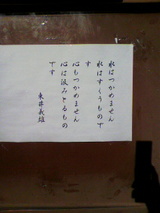 水はつかめません
水はすくうもので
す
心もつかめません
心は汲みとるもの
です
東井義雄